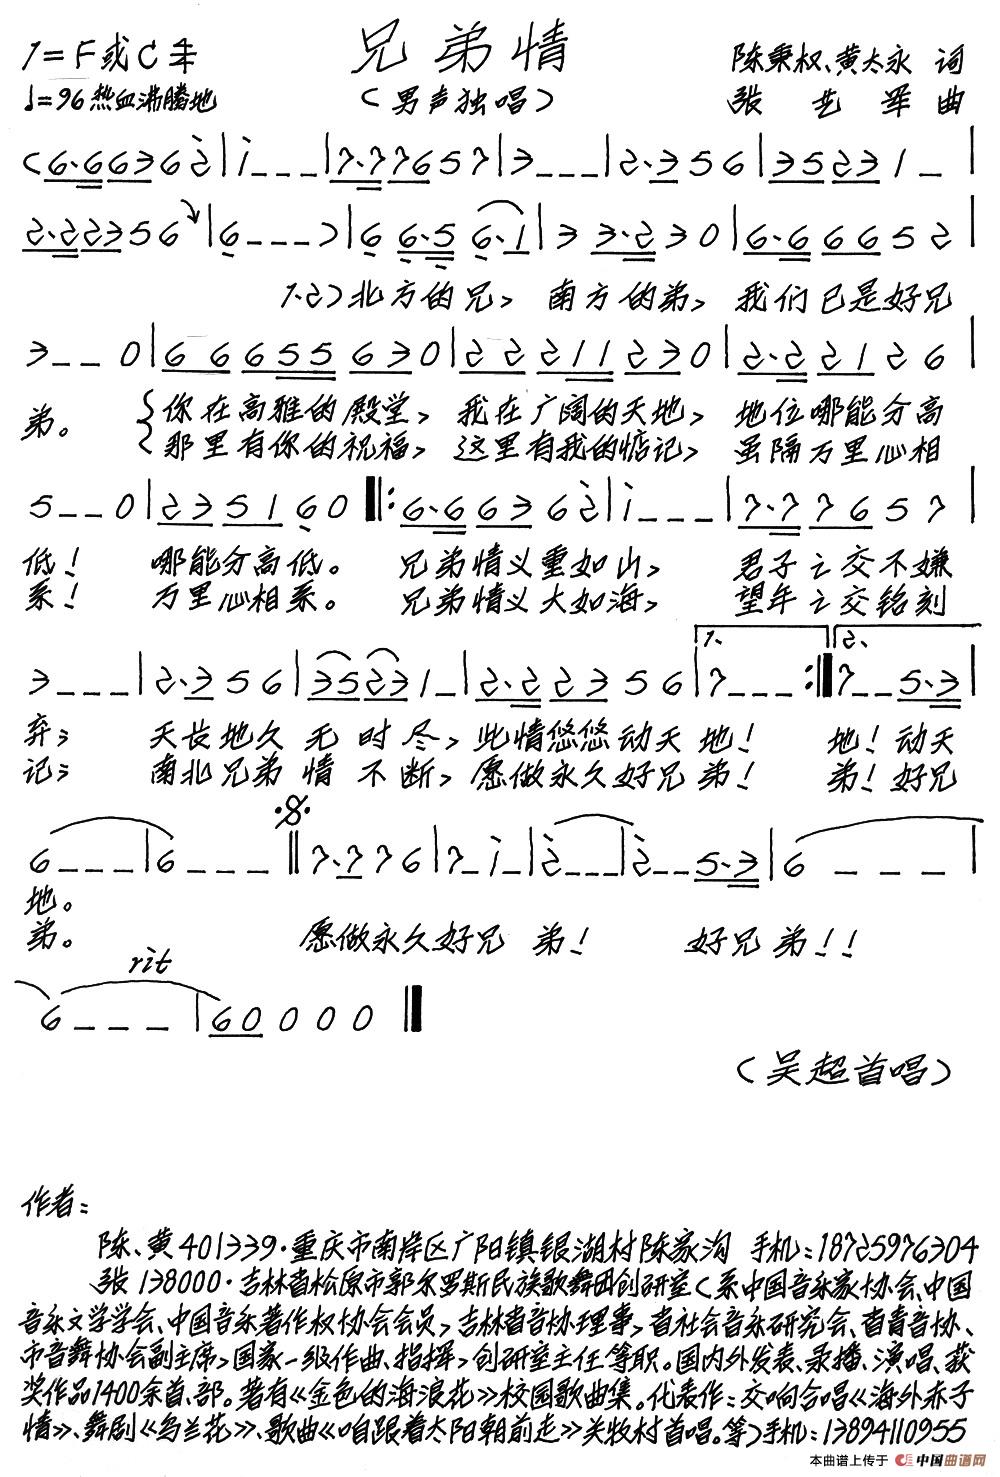 兄弟情
1=F或C 4/4
陈秉权、黄太永 词
♩=96 热血沸腾地
（男声独唱）
张艺军 曲
(6·6 6 3 6 2̇ | 1̇ - - - | 7·7 7 6 5 7 | 3 - - - | 2·3 5 6 | 3 5 2 3 1 - |
2·2 2 3 5 6 | 6 - - -) | 6 6·5 6·1 | 3 3·2 3 0 | 6·6 6 6 5 2 |
1、2）北方的兄， 南方的弟， 我们已是好兄
3 - - 0 | 6 6 6 5 5 6 3 0 | 2 2 2 1 1 2 3 0 | 2·2 2 1 2 6 |
弟。 你在高雅的殿堂， 我在广阔的天地， 地位哪能分高
那里有你的祝福， 这里有我的惦记， 虽隔万里心相
5 - - 0 | 2 3 5 1 6 0 ‖: 6·6 6 3 6 2̇ | 1̇ - - - | 7·7 7 6 5 7 |
低！ 哪能分高低。 兄弟情义重如山， 君子之交不嫌
系！ 万里心相系。 兄弟情义大如海， 望年之交铭刻
1、 2、
3 - - - | 2·3 5 6 | 3 5 2 3 1 - | 2·2 2 3 5 6 | 7 - - - :‖ 7 - - 5·3 |
弃； 天长地久无时尽， 此情悠悠动天地！ 地！动天
记； 南北兄弟情不断， 愿做永久好兄弟！ 弟！好兄
6 - - - | 6 - - - ‖ 7·7 7 6 | 7 - 1̇ - | 2̇ - - - | 2̇ - - 5·3 | 6 - - - |
地。
弟。 愿做永久好兄弟！ 好兄弟！！
rit
6 - - - | 6 0 0 0 0 ‖
（吴超首唱）
作者：
陈、黄401339·重庆市南岸区广阳镇银湖村陈家沟 手机：18725976304
张138000·吉林省松原市郭尔罗斯民族歌舞团创研室（系中国音乐家协会、中国
音乐文学学会、中国音乐著作权协会会员，吉林省音协理事，省社会音乐研究会、省青音协、
市音舞协会副主席，国家一级作曲、指挥，创研室主任等职。国内外发表、录播、演唱、获
奖作品1400余首、部。著有《金色的海浪花》校园歌曲集。代表作：交响合唱《海外赤子
情》、舞剧《乌兰花》、歌曲《咱跟着太阳朝前走》关牧村首唱。等）手机：13894110955
本曲谱上传于 中国曲谱网